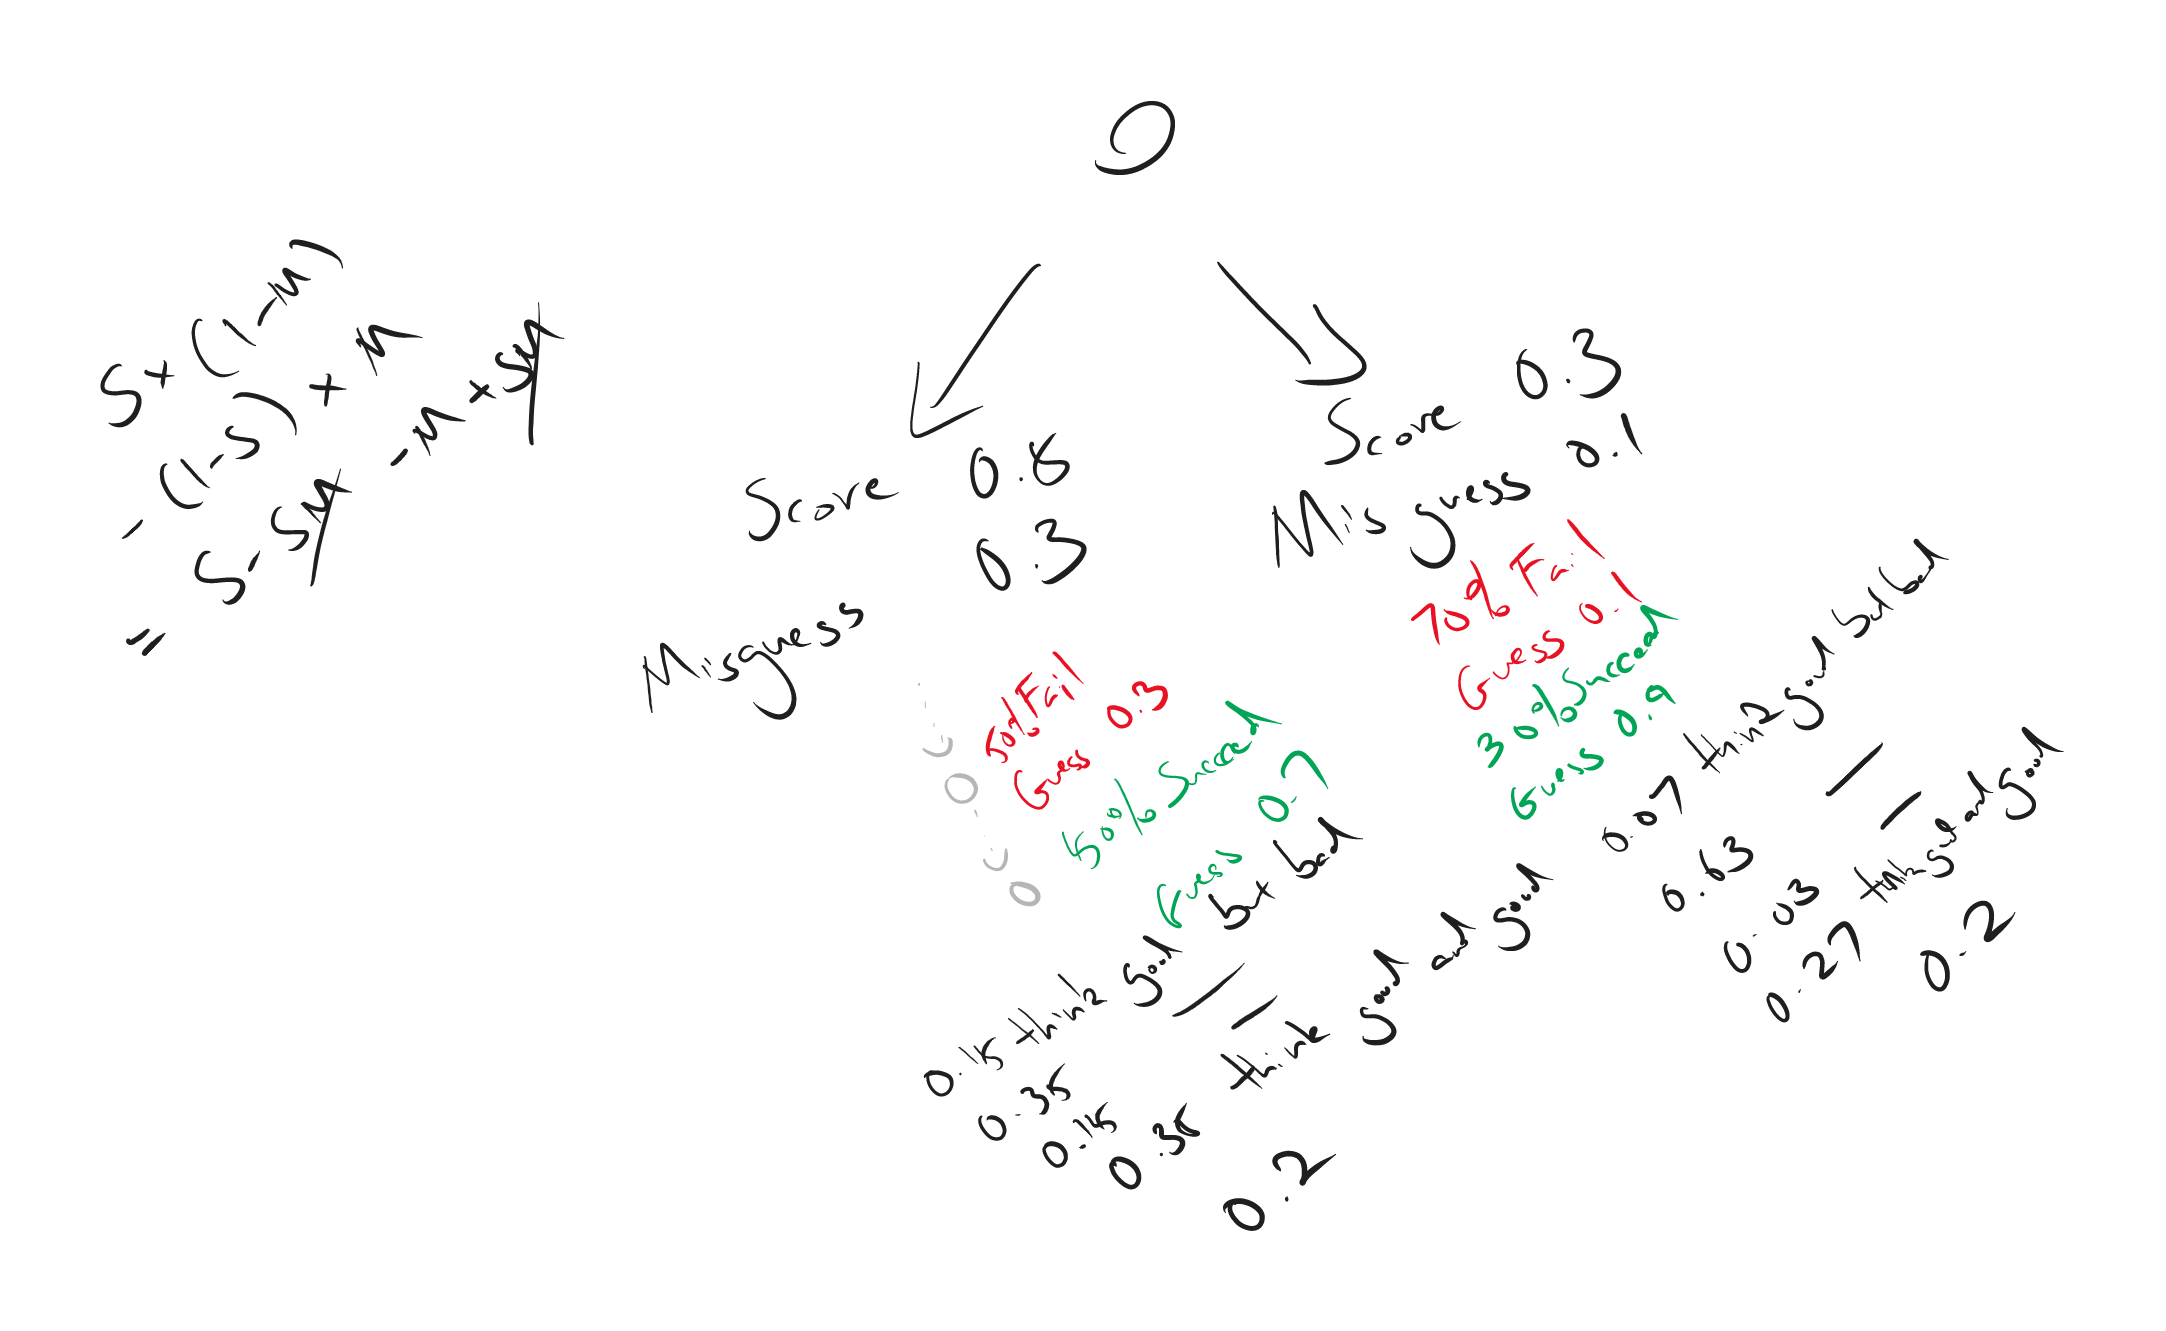 S * (1-M)
- (1-S) * M
= S - SM - M + SM
Score 0.8
Misguess 0.3
50% Fail
Guess 0.3
50% Succeed
Guess 0.7
0.15 think good but bad
0.35
0.15
0.35 think good and good
0.2
Score 0.3
Misguess 0.1
70% Fail
Guess 0.1
30% Succeed
Guess 0.9
0.07 think good but bad
0.63
0.03
0.27 think good and good
0.2